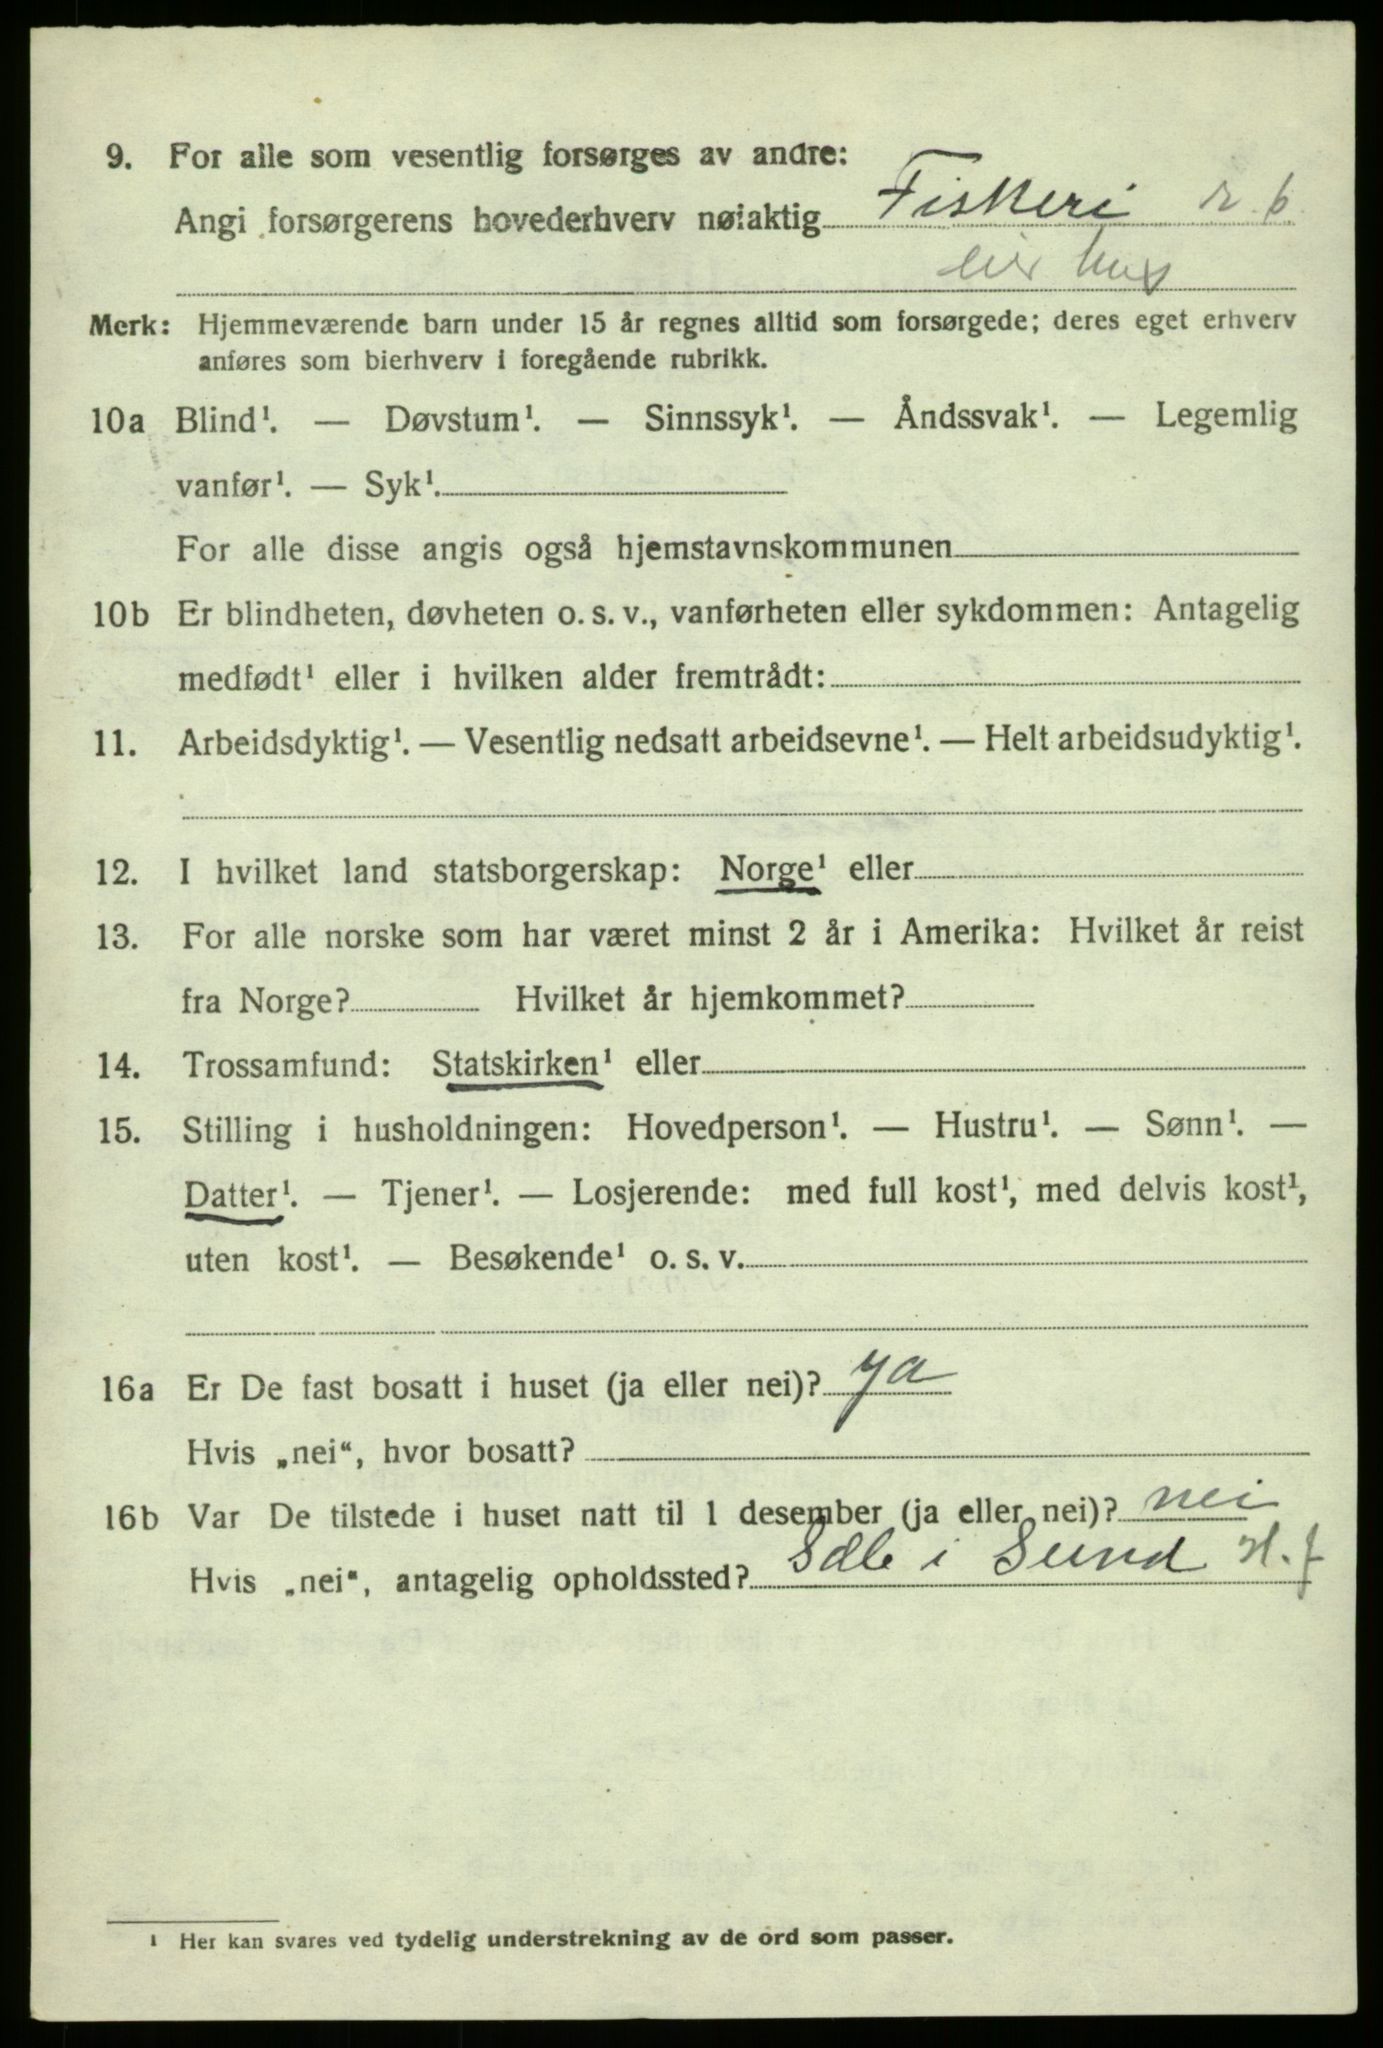 9. For alle som vesentlig forsørges av andre:
Angi forsørgerens hovederhverv nøiaktig Fiskeri r. b.
eier hus
Merk: Hjemmeværende barn under 15 år regnes alltid som forsørgede; deres eget erhverv
anføres som bierhverv i foregående rubrikk.
10a Blind¹. — Døvstum¹. — Sinnssyk¹. — Åndssvak¹. — Legemlig
vanfør¹. — Syk¹.
For alle disse angis også hjemstavnskommunen
10b Er blindheten, døvheten o. s. v., vanførheten eller sykdommen: Antagelig
medfødt¹ eller i hvilken alder fremtrådt:
11. Arbeidsdyktig¹. — Vesentlig nedsatt arbeidsevne¹. — Helt arbeidsudyktig¹.
12. I hvilket land statsborgerskap: Norge¹ eller
13. For alle norske som har været minst 2 år i Amerika: Hvilket år reist
fra Norge? Hvilket år hjemkommet?
14. Trossamfund: Statskirken¹ eller
15. Stilling i husholdningen: Hovedperson¹. — Hustru¹. — Sønn¹. —
Datter¹. — Tjener¹. — Losjerende: med full kost¹, med delvis kost¹,
uten kost¹. — Besøkende¹ o. s. v.
16a Er De fast bosatt i huset (ja eller nei)? ja
Hvis „nei“, hvor bosatt?
16b Var De tilstede i huset natt til 1 desember (ja eller nei)? nei
Hvis „nei“, antagelig opholdssted? i Sund H. f
¹ Her kan svares ved tydelig understrekning av de ord som passer.